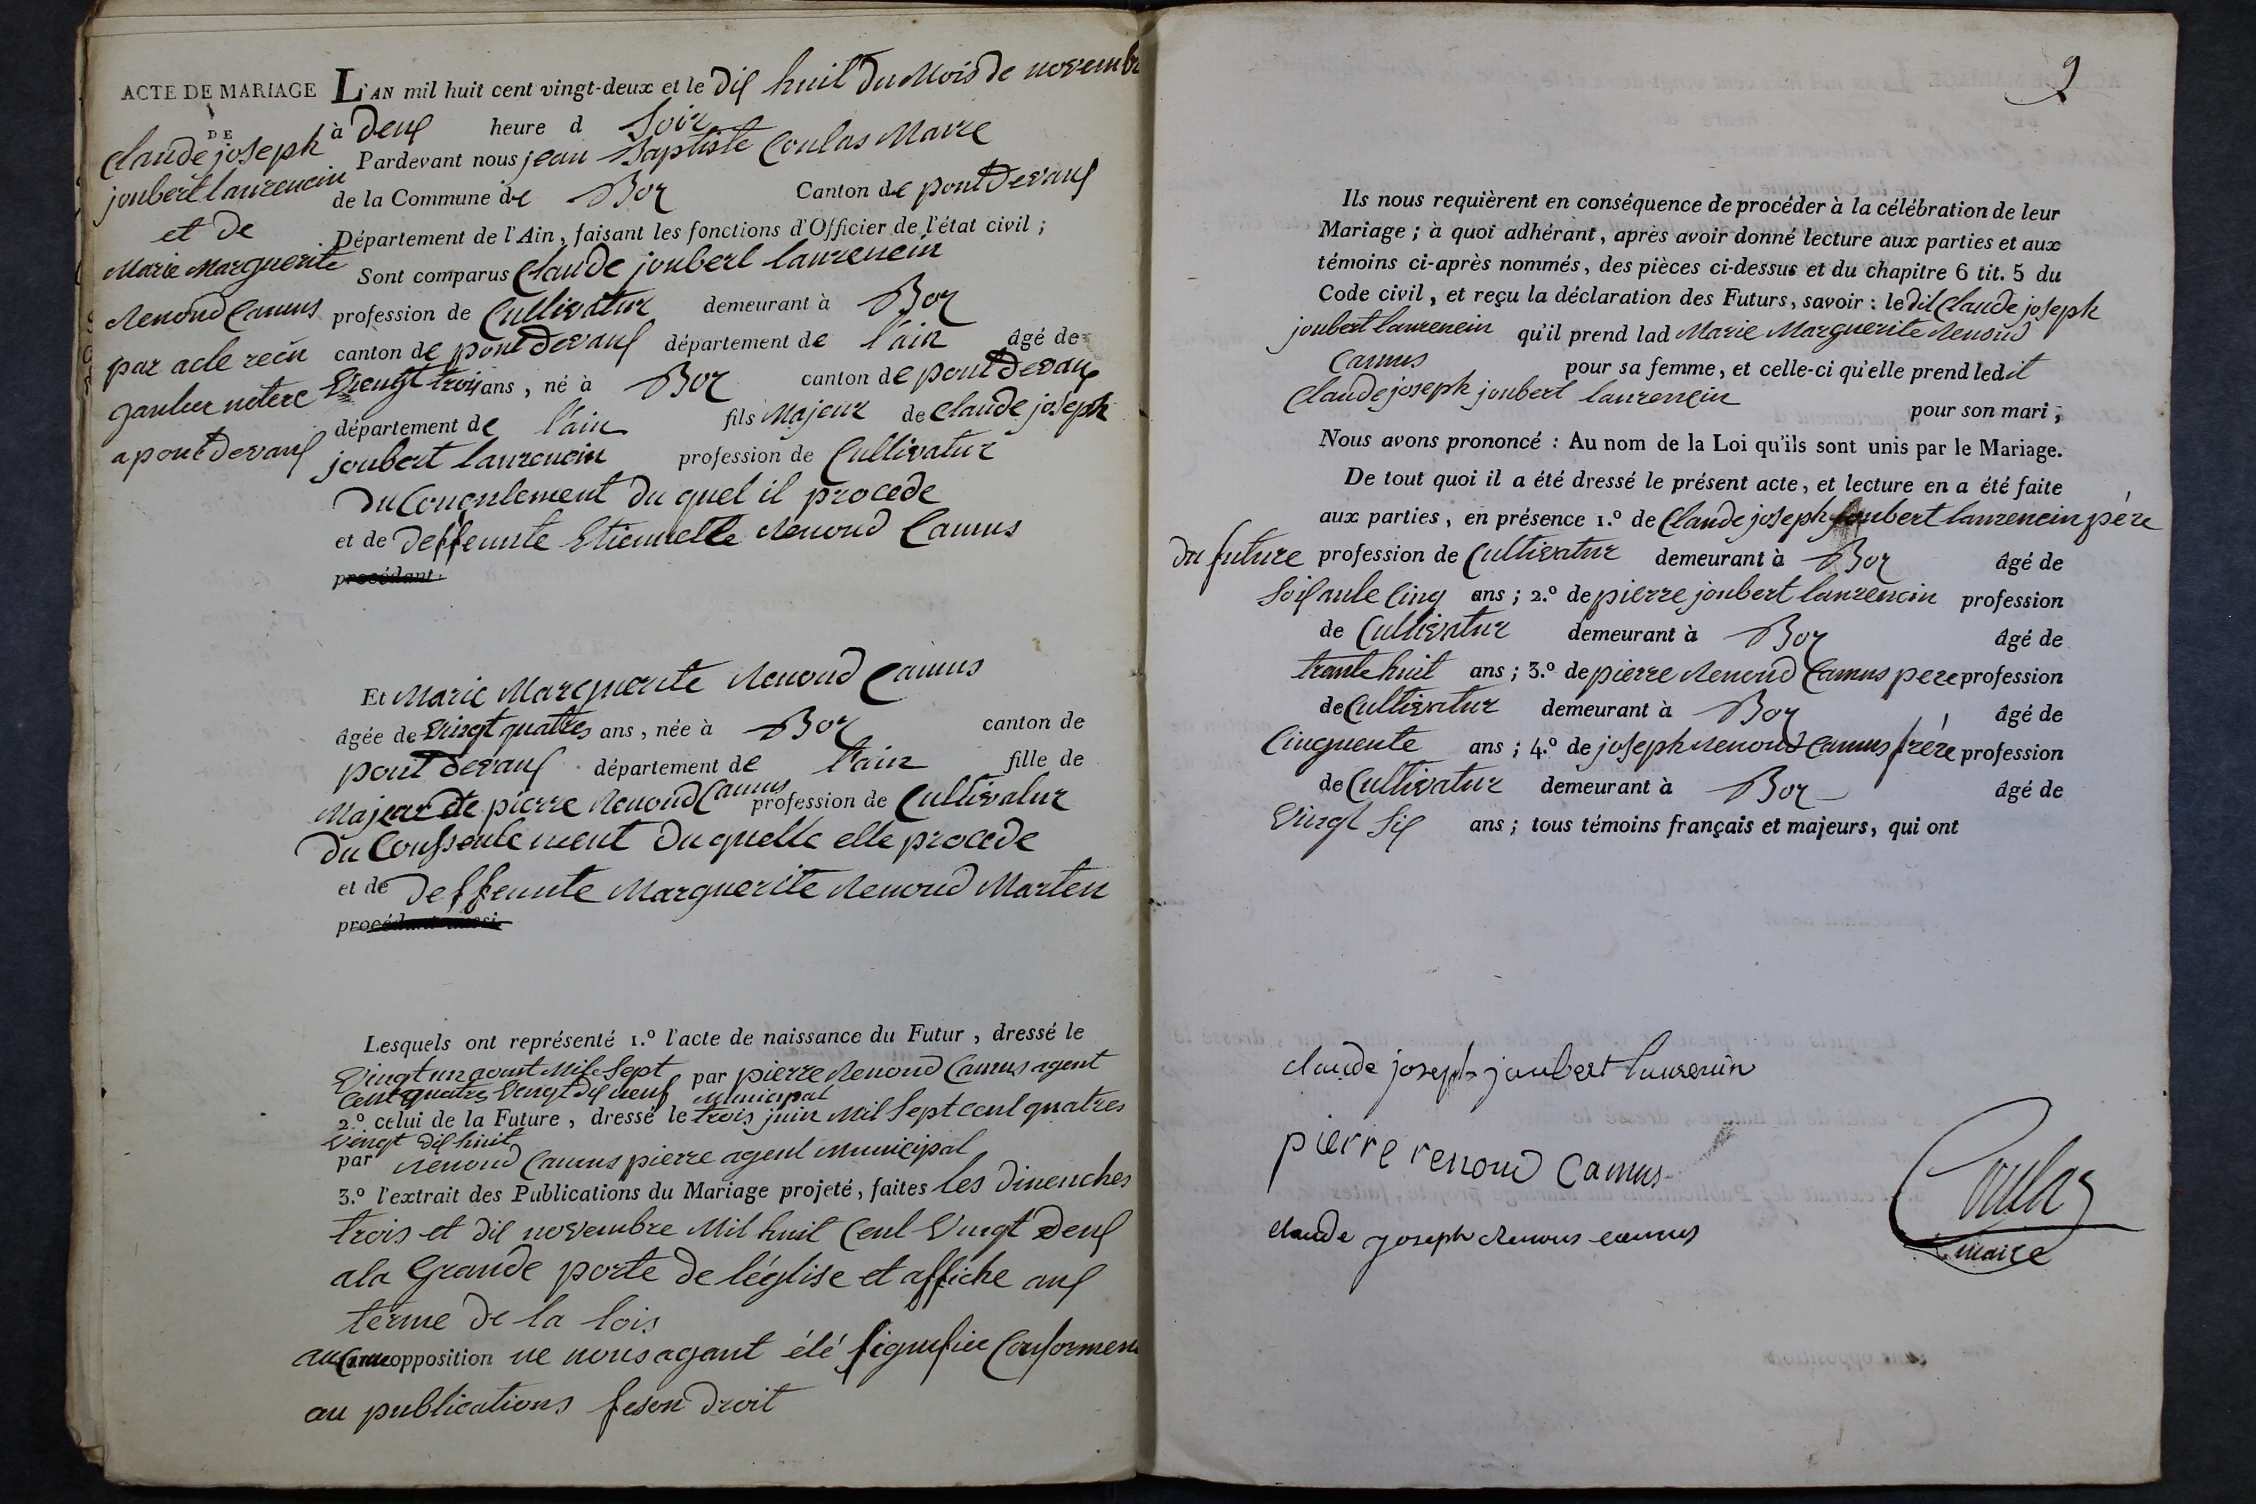 ACTE DE MARIAGE
DE
Claude joseph
joubert laurencin
et de
Marie Marguerite
Renoud Camus
par acte recu
notere
a pont devaux
L'AN mil huit cent vingt-deux et le dix huit du Mois de novembre
à deux heure d Soir
Pardevant nous jean Baptiste Coulas Maire
de la Commune de Boz Canton de pont Devaux
Département de l'Ain, faisant les fonctions d'Officier de l'état civil ;
Sont comparus Claude joubert laurencin
profession de Cultivatur demeurant à Boz
canton de pont devaux département de l'ain âgé de
Viengt trois ans, né à Boz canton de pont Devaux
département de l'ain fils Majeur de Claude joseph
joubert laurencin profession de Cultivatur
du duquel il procede
et de deffeunte Etiennette Renoud Camus
procédant
Et Marie Marguerite Renoud Camus
âgée de Vingt quatres ans, née à Boz canton de
pont devaux département de l'ain fille de
Majeur de pierre Renoud Camus profession de Cultivatur
du Conssentement duquelle elle procede
et de deffeunte Marguerite Renoud Marten
procédant aussi
Lesquels ont représenté 1.º l'acte de naissance du Futur, dressé le
Vingt un aout Mil Sept
Cent quatres Vengt dix neuf par pierre Renoud Camus agent
Municipal
2.º celui de la Future, dressé le trois juin Mil Sept cent quatres
Vengt dix huit
par Renoud Camus pierre agent Municipal
3.º l'extrait des Publications du Mariage projeté, faites les dimenches
trois et dix novembre Mil huit Cent Vingt deux
a la Grande porte de l'église et affiche aux
terme de la lois
aucune opposition ne nous ayant été signifiee
au publications droit
2
Ils nous requièrent en conséquence de procéder à la célébration de leur
Mariage ; à quoi adhérant, après avoir donné lecture aux parties et aux
témoins ci-après nommés, des pièces ci-dessus et du chapitre 6 tit. 5 du
Code civil, et reçu la déclaration des Futurs, savoir : le dit Claude joseph
joubert laurencin qu'il prend lad Marie Marguerite Renoud
Camus pour sa femme, et celle-ci qu'elle prend ledit
Claude joseph joubert laurencin pour son mari ;
Nous avons prononcé : Au nom de la Loi qu'ils sont unis par le Mariage.
De tout quoi il a été dressé le présent acte, et lecture en a été faite
aux parties, en présence 1.º de Claude joseph joubert laurencin pére
du future profession de Cultivatur demeurant à Boz âgé de
Soixante Cinq ans ; 2.º de pierre joubert laurencin profession
de Cultivatur demeurant à Boz âgé de
trante huit ans ; 3.º de pierre Renoud Camus pere profession
de Cultivatur demeurant à Boz âgé de
Cinquente ans ; 4.º de joseph Renoud Camus frére profession
de Cultivatur demeurant à Boz âgé de
Vingt Six ans ; tous témoins français et majeurs, qui ont
claude joseph joubert laurencin
pierre renoud Camus
Coulas
maire
claude joseph Renoud camus